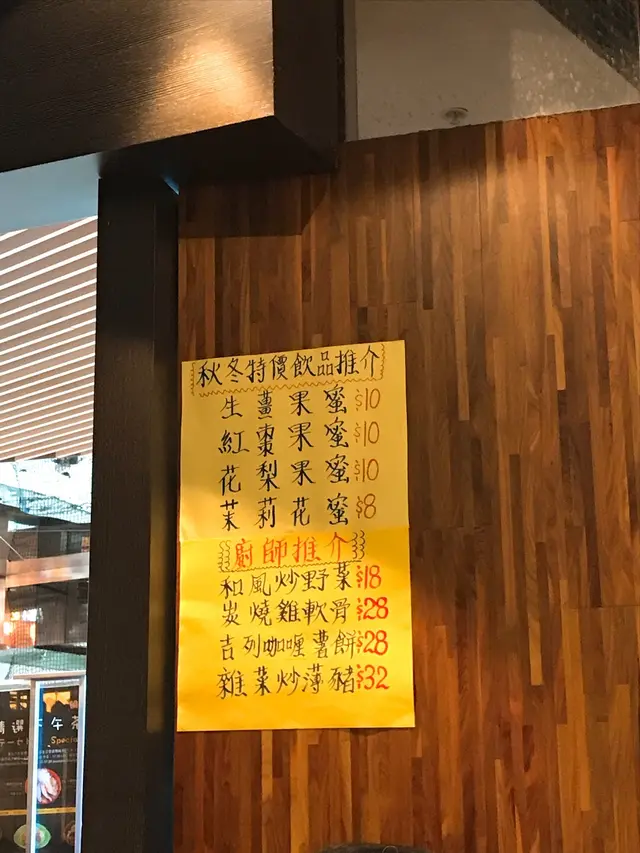 秋冬特價飲品推介
生薑果蜜$10
紅棗果蜜$10
花梨果蜜$10
茉莉花蜜$8
廚師推介
和風炒野菜$18
炭燒雞軟骨$28
吉列咖喱薯餅$28
雜菜炒薄豬$32
午茶
Special